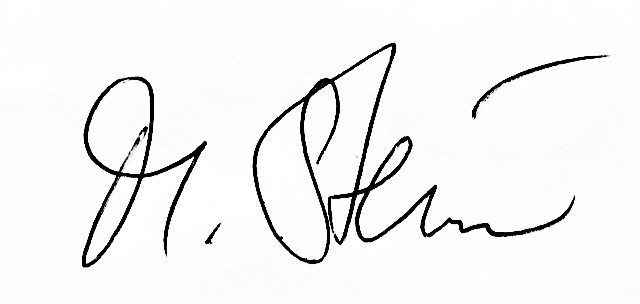 M. Stein